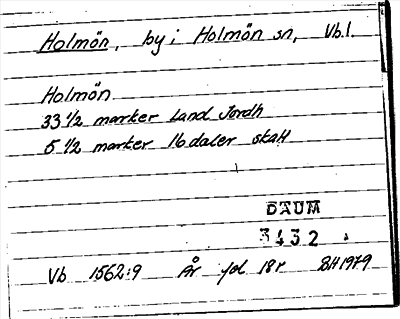 Holmön, by i Holmön sn, Vb.l.
Holmön
33 1/2 marker Land Jordh
5 1/2 marker 16 daler skatt
DAUM
3432
Vb 1562:9 År jol 18r BH 1979